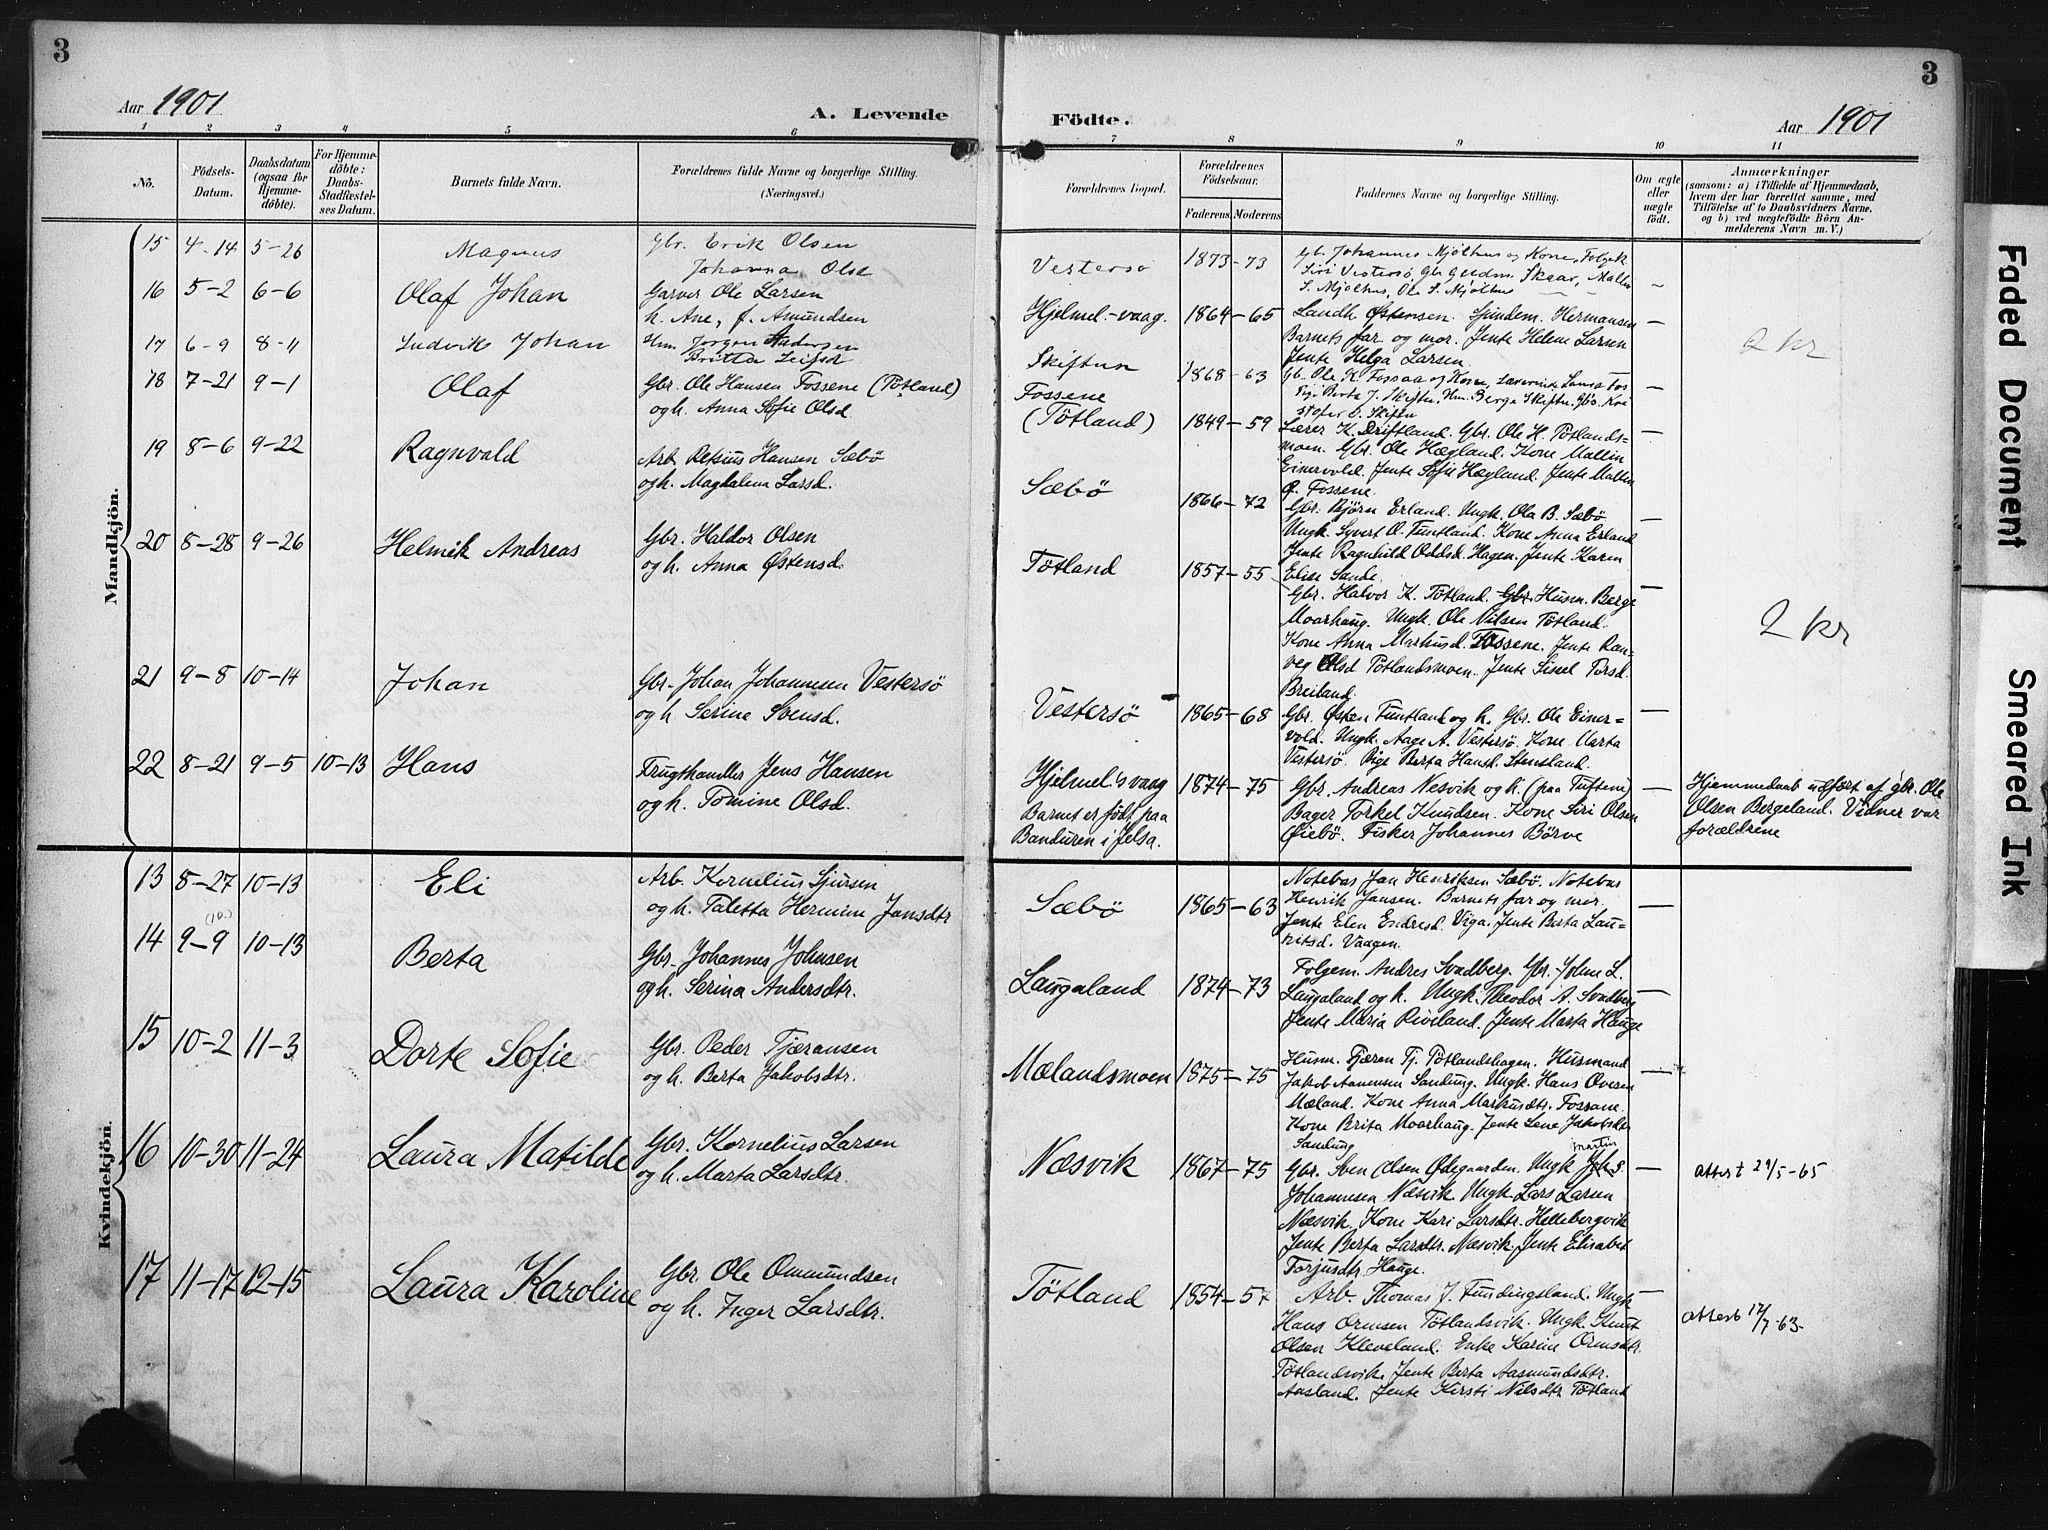 3
Aar 1901
A. Levende
1 2 3 4 5 6
No.
Födsels-
Datum.
Daabsdatum
(ogsaa for
Hjemme-
döbte).
For Hjemme-
döbte:
Daabs-
Stadfæstel-
ses Datum.
Barnets fulde Navn.
Forældrenes fulde Navne og borgerlige Stilling.
(Næringsvei.)
Mandkjön.
15 4-14 5-26 Magnus Gbr. Erik Olsen
Johanna Olsd
16 5-2 6-6 Olaf Johan Garver Ole Larsen
h. Ane, f. Amundsen
17 6-9 8-11 Ludvik Johan Hm. Jørgen Andersen
Britta Leifsd
18 7-21 9-1 Olaf Gbr. Ole Hansen Fossene (Tötland)
og h. Anna Sofie Olsd.
19 8-6 9-22 Ragnvald Arb. Hansen Sæbö
og h. Magdalena Larsd.
20 8-28 9-26 Helmik Andreas Gbr. Haldor Olsen
og h. Anna Østensd.
21 9-8 10-14 Johan Gbr. Johan Johannesen Vestersö
og h. Serine Svensd.
22 8-21 9-5 10-13 Hans Frugthandler Jens Hansen
og h. Tomine Olsd.
Kvindekjön.
13 8-27 10-13 Eli Arb. Kornelius Sjursen
og h. Taletta Hermine Jansdtr
14 9-9 (10.) 10-13 Berta Gbr. Johannes Johnsen
og h. Serina Andersdtr.
15 10-2 11-3 Dorte Sofie Gbr. Peder Tjæransen
og h. Berta Jakobsdtr.
16 10-30 11-24 Laura Matilde Gbr. Kornelius Larsen
og h. Marta Larsdtr.
17 11-17 12-15 Laura Karoline Gbr. Ole Ommundsen
og h. Inger Larsdtr.
3
Födte.
Aar 1901
7 8 9 10 11
Forældrenes Bopæl.
Forældrenes
Födselsaar.
Faderens Moderens
Faddernes Navne og borgerlige Stilling.
Om ægte
eller
uægte
født.
Anmærkninger
(saasom: a) i Tilfælde af Hjemmedaab,
hvem der har forrettet samme, med
Tilföielse af to Daabsvidners Navne,
og b) ved uægtefödte Börn An-
melderens Navn m. V.)
Vestersö 1873-73 Gb. Johannes Mjölhus og Kone, Folgek.
Siri Vestersö, Gbr. Gudm. Skaar, Mallin
S. Mjölhus, Ole S. Mjölhus —
Hjelmel.-vaag. 1864-65 Landh. Østensen. Hermansen —
Barnets far og mor. Jente Helene Larsen
Jente Helga Larsen. 2 kr
Skiftun 1868-63 Gb. Ole K. Fossaa og Kone, Lærerinde —
Pige Berta J. Skiftun, Hm. Berga Skiftun, Gbs. Kri
stofer B. Skiftu
Fossene
(Tötland) 1849-59 Lærer K. Driftland. Gbr. Ole H. Tötlands- —
moen. Gbr. Ole Hægland. Kone Mallin
Einervold. Jente Sofie Hægland. Jente Mallin
O. Fossene.
Sæbö 1866-72 Gbr. Björn Erland. Ungk. Ola B. Sæbö —
Ungk. Syvert O. Funtland. Kone Anna Erland
Jente Ragnhild Oddsd. Hagen. Jente Karen
Elise Sande.
Tötland 1857-55 Gbr. Halvor K. Tötland. Gbr. Husm. Berge —
Moarhaug. Ungk. Ole Nilsen Tötland.
Kone Anna Markusd. Fossene. Jente Ran-
veg Olsd Tötlandsmoen. Jente Sisel Torsd.
Breiland. 2 kr
Vestersö 1865-68 Gbr. Østen Funtland og h. Gbr. Ole Einer- —
vold. Ungk. Aage A. Vestersö. Kone Marta
Vestersö. Pige Berta Stensland.
Hjelmel.svaag 1874-75 Gbr. Andreas Nesvik og h. (paa Tuftene) —
Barnet er født paa
Banduren i Jelsa.
Bager Torkel Knudsen. Kone Siri Olsen
Øiebö. Fisker Johannes Börve
Hjemmedaab udført af gbr. Ole
Olsen Bergeland. Vidner var
forældrene
Sæbö 1865-63 Notebas Jan Henriksen Sæbö. Notebas
Henrik Jansen. Barnets far og mor. —
Jente Elen Endresd. Viga. Jente Berta Lau-
ritsd. Vaagen.
Laugaland 1874-73 Folgem. Andres Svadberg. Gbr. Johne L.
Laugaland og h. Ungk. Theodor A. Svadberg —
Jente Maria Riveland. Jente Marta Hauge
Mælandsmoen 1875-75 Husm. Tjæren Tj. Tötlandshagen. Husmand
Jakob Aanensen Sandung. Ungk. Hans Ovesen —
Mæland. Kone Anna Markusdtr. Fossane.
Kone Brita Moarhaug. Jente Lene Jakobsdtr
Sandung
Næsvik 1867-75 Gbr. Sven Olsen Ødegaarden. Ungk. Martin —
Johannesen Næsvik. Ungk. Lars Larsen
Næsvik. Kone Kari Larsdtr. Hellebergvik
Jente Berta Larsdtr. Næsvik. Jente Elisabet
Torjusdtr. Hauge.
attest 29/5-65
Tötland 1854-57 Arb. Thomas J. Fundingsland. Ungk —
Hans Ormsen Tötlandsvik. Ungk. Knut
Olsen Kleveland. Enke Karine Ormsdtr.
Tötlandsvik. Jente Berta Aasmundsdtr.
Aasland. Jente Kirsti Nilsdtr Tötland
attest 17/7-63.
Faded Document
Smeared Ink